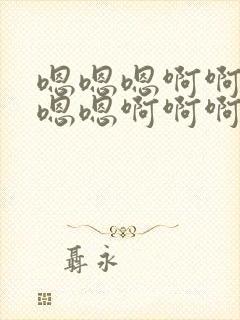 嗯嗯嗯啊啊
嗯嗯啊啊啊
聶永